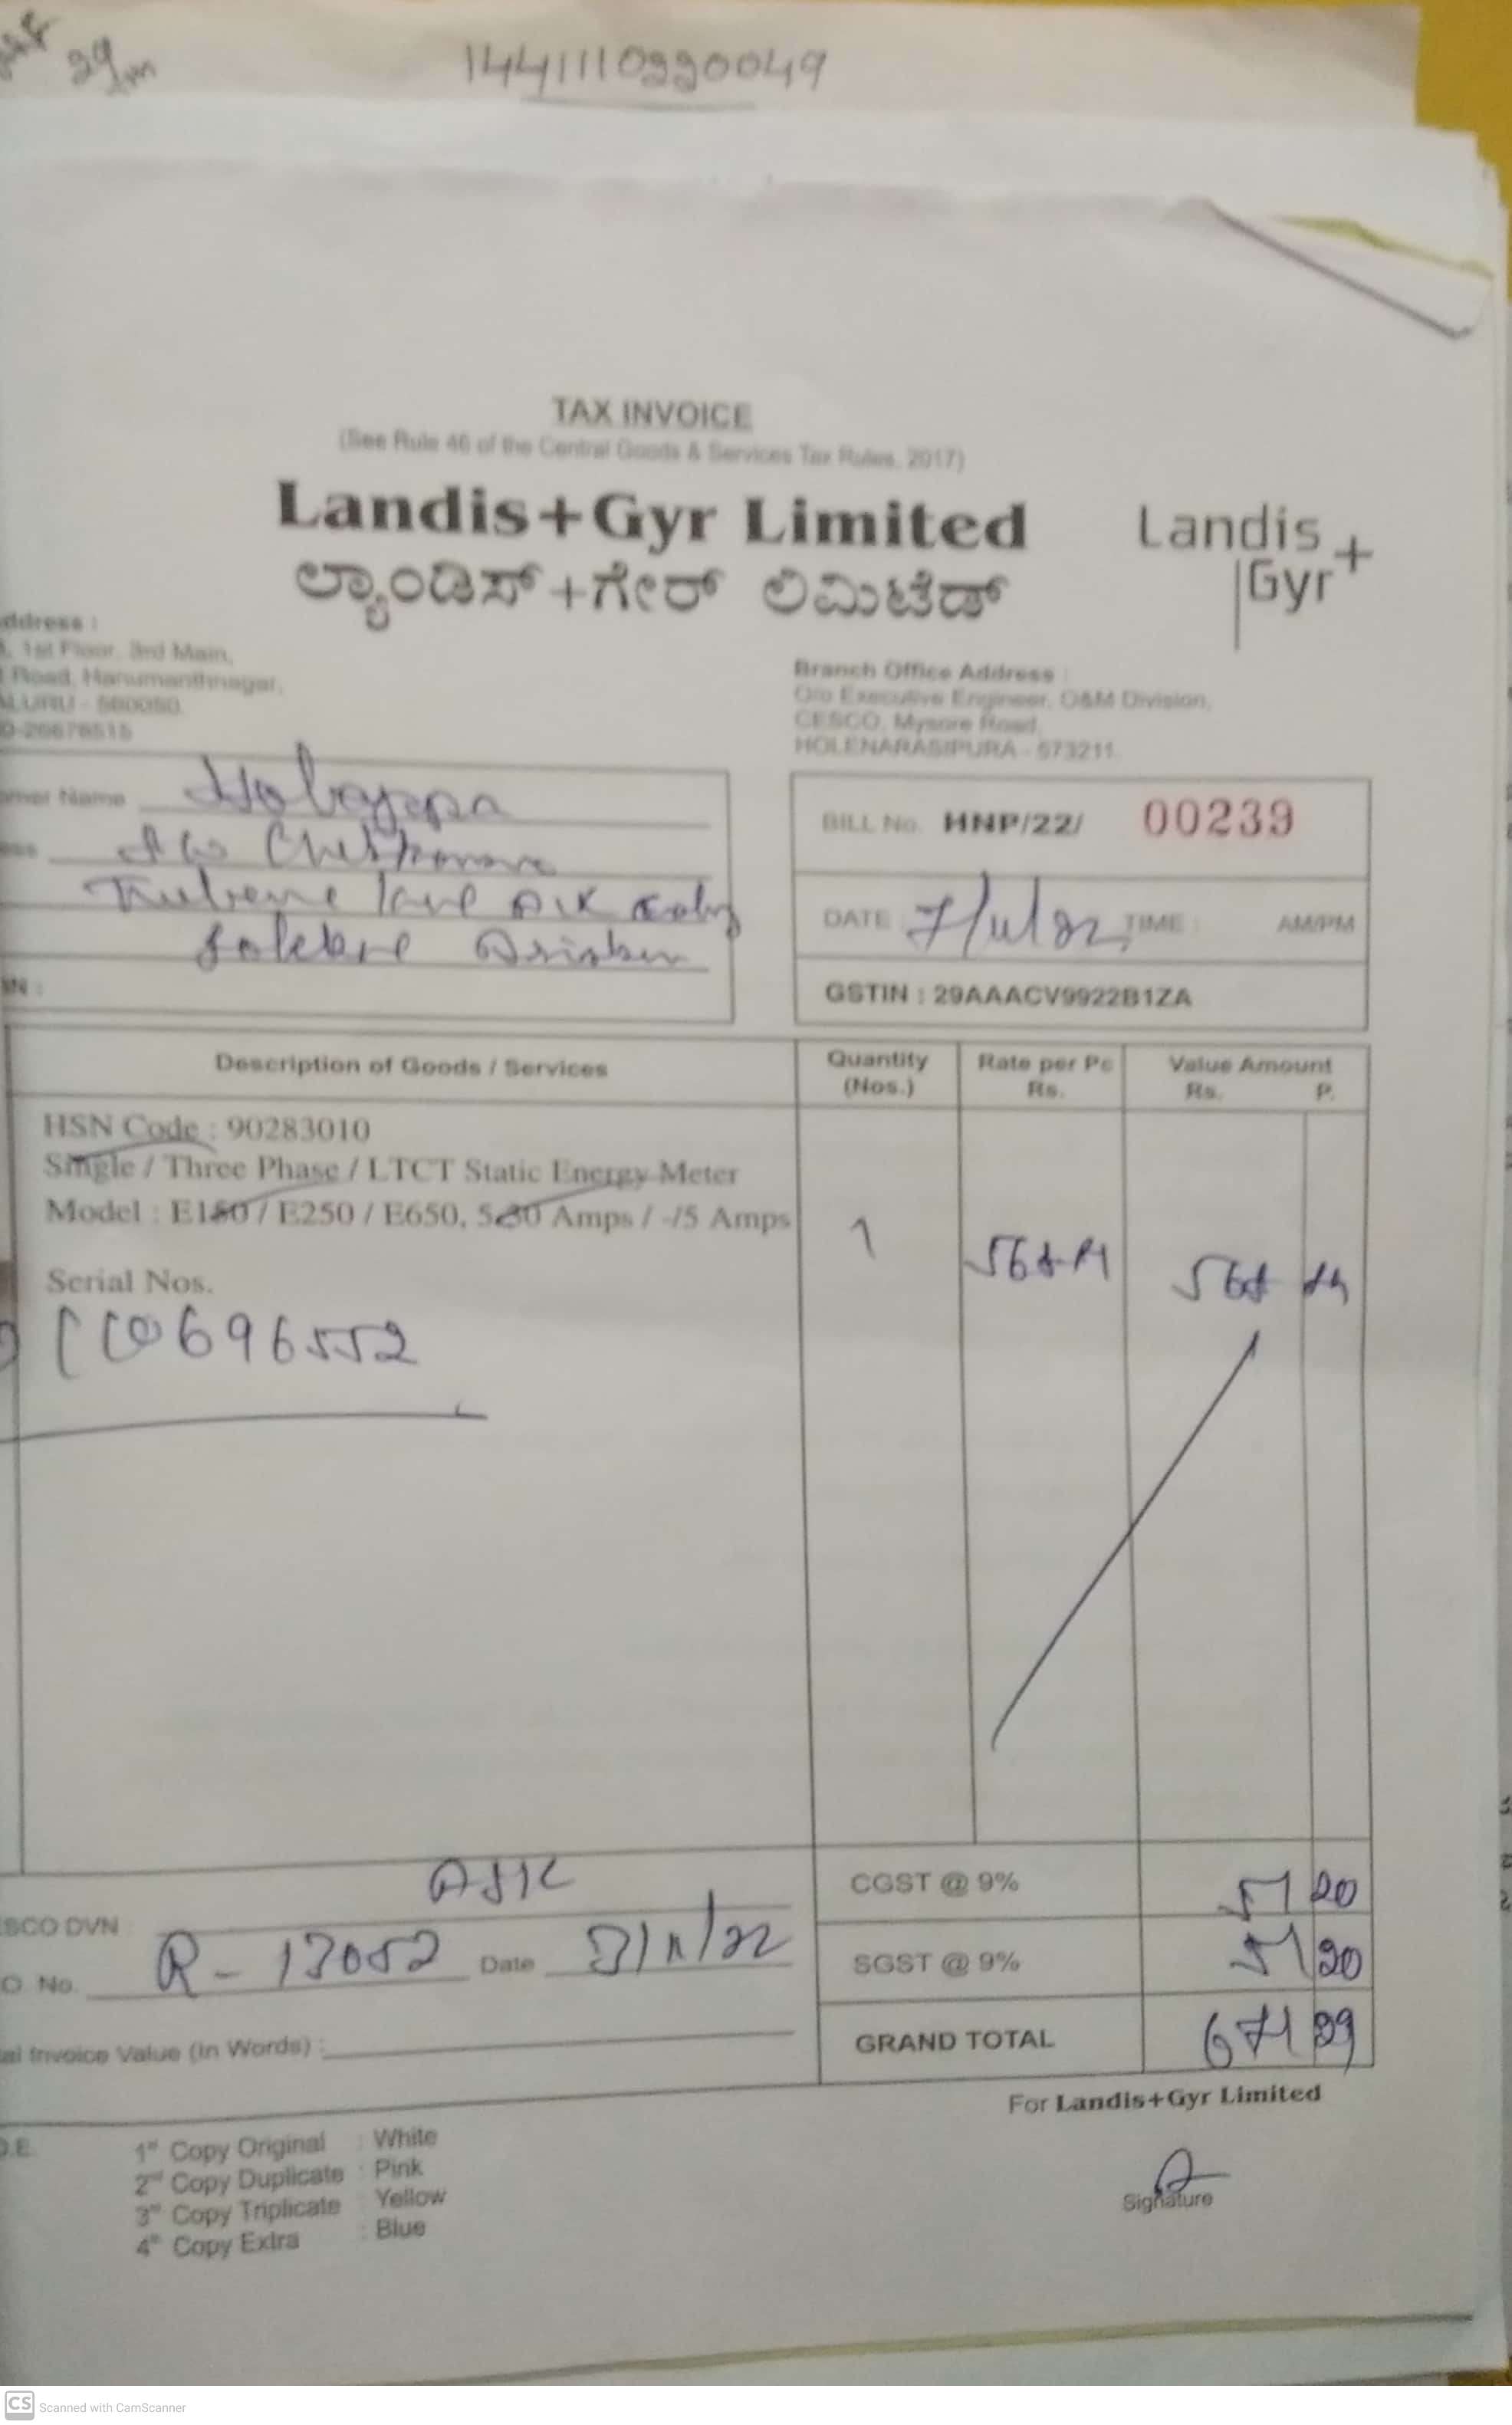 39
1441110990049
TAX INVOICE
(See Rule 46 of the Central Goods & Services Tax Rules, 2017)
Landis+Gyr Limited
ಲ್ಯಾಂಡಿಸ್+ಗೇರ್ ಲಿಮಿಟೆಡ್
Landis+
Gyr
ddress :
1st Floor, 3rd Main,
Road, Hanumanthnagar,
LURU - 560050
0-26676515
Branch Office Address :
O/o Executive Engineer, O&M Division,
CESCO, Mysore Road,
HOLENARASIPURA - 573211.
mer Name
BILL No. HNP/22/ 00239
DATE 7/11/22 TIME : AM/PM
GSTIN : 29AAACV9922B1ZA
Description of Goods / Services
Quantity
(Nos.)
Rate per Pc
Rs.
Value Amount
Rs. P.
HSN Code : 90283010
Single / Three Phase / LTCT Static Energy Meter
Model : E150 / E250 / E650, 5-30 Amps / -/5 Amps
1
Serial Nos.
696552
CGST @ 9% 51 20
SCO DVN
O No. R - 13052 Date
SGST @ 9% 51 20
al Invoice Value (in Words) :
GRAND TOTAL 671 39
For Landis+Gyr Limited
O.E.
1st Copy Original : White
2nd Copy Duplicate : Pink
3rd Copy Triplicate : Yellow
4th Copy Extra : Blue
Signature
CS Scanned with CamScanner